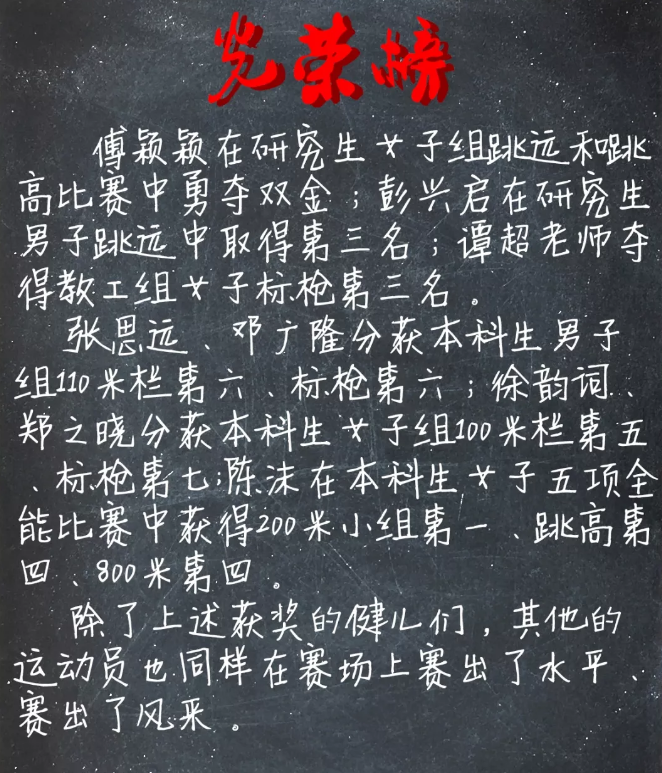 光荣榜
傅颖颖在研究生女子组跳远和跳
高比赛中勇夺双金；彭兴启在研究生
男子跳远中取得第三名；谭超老师夺
得教工组女子标枪第三名。
张思远、邓广隆分获本科生男子
组110米栏第六、标枪第六；徐韵词、
郑之晓分获本科生女子组100米栏第五
、标枪第七；陈沫在本科生女子五项全
能比赛中获得200米小组第一、跳高第
四、800米第四。
除了上述获奖的健儿们，其他的
运动员也同样在赛场上赛出了水平、
赛出了风采。